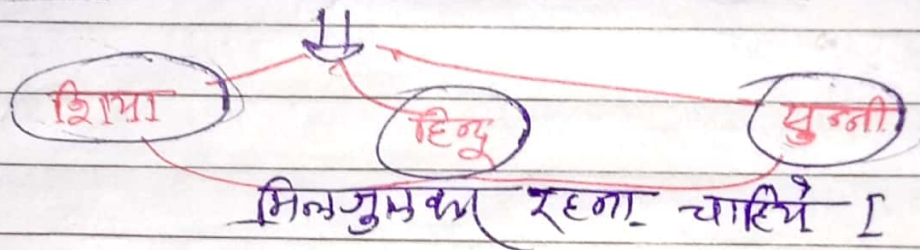 शिया हिन्दू सुन्नी
मिलजुलकर रहना चाहिये I